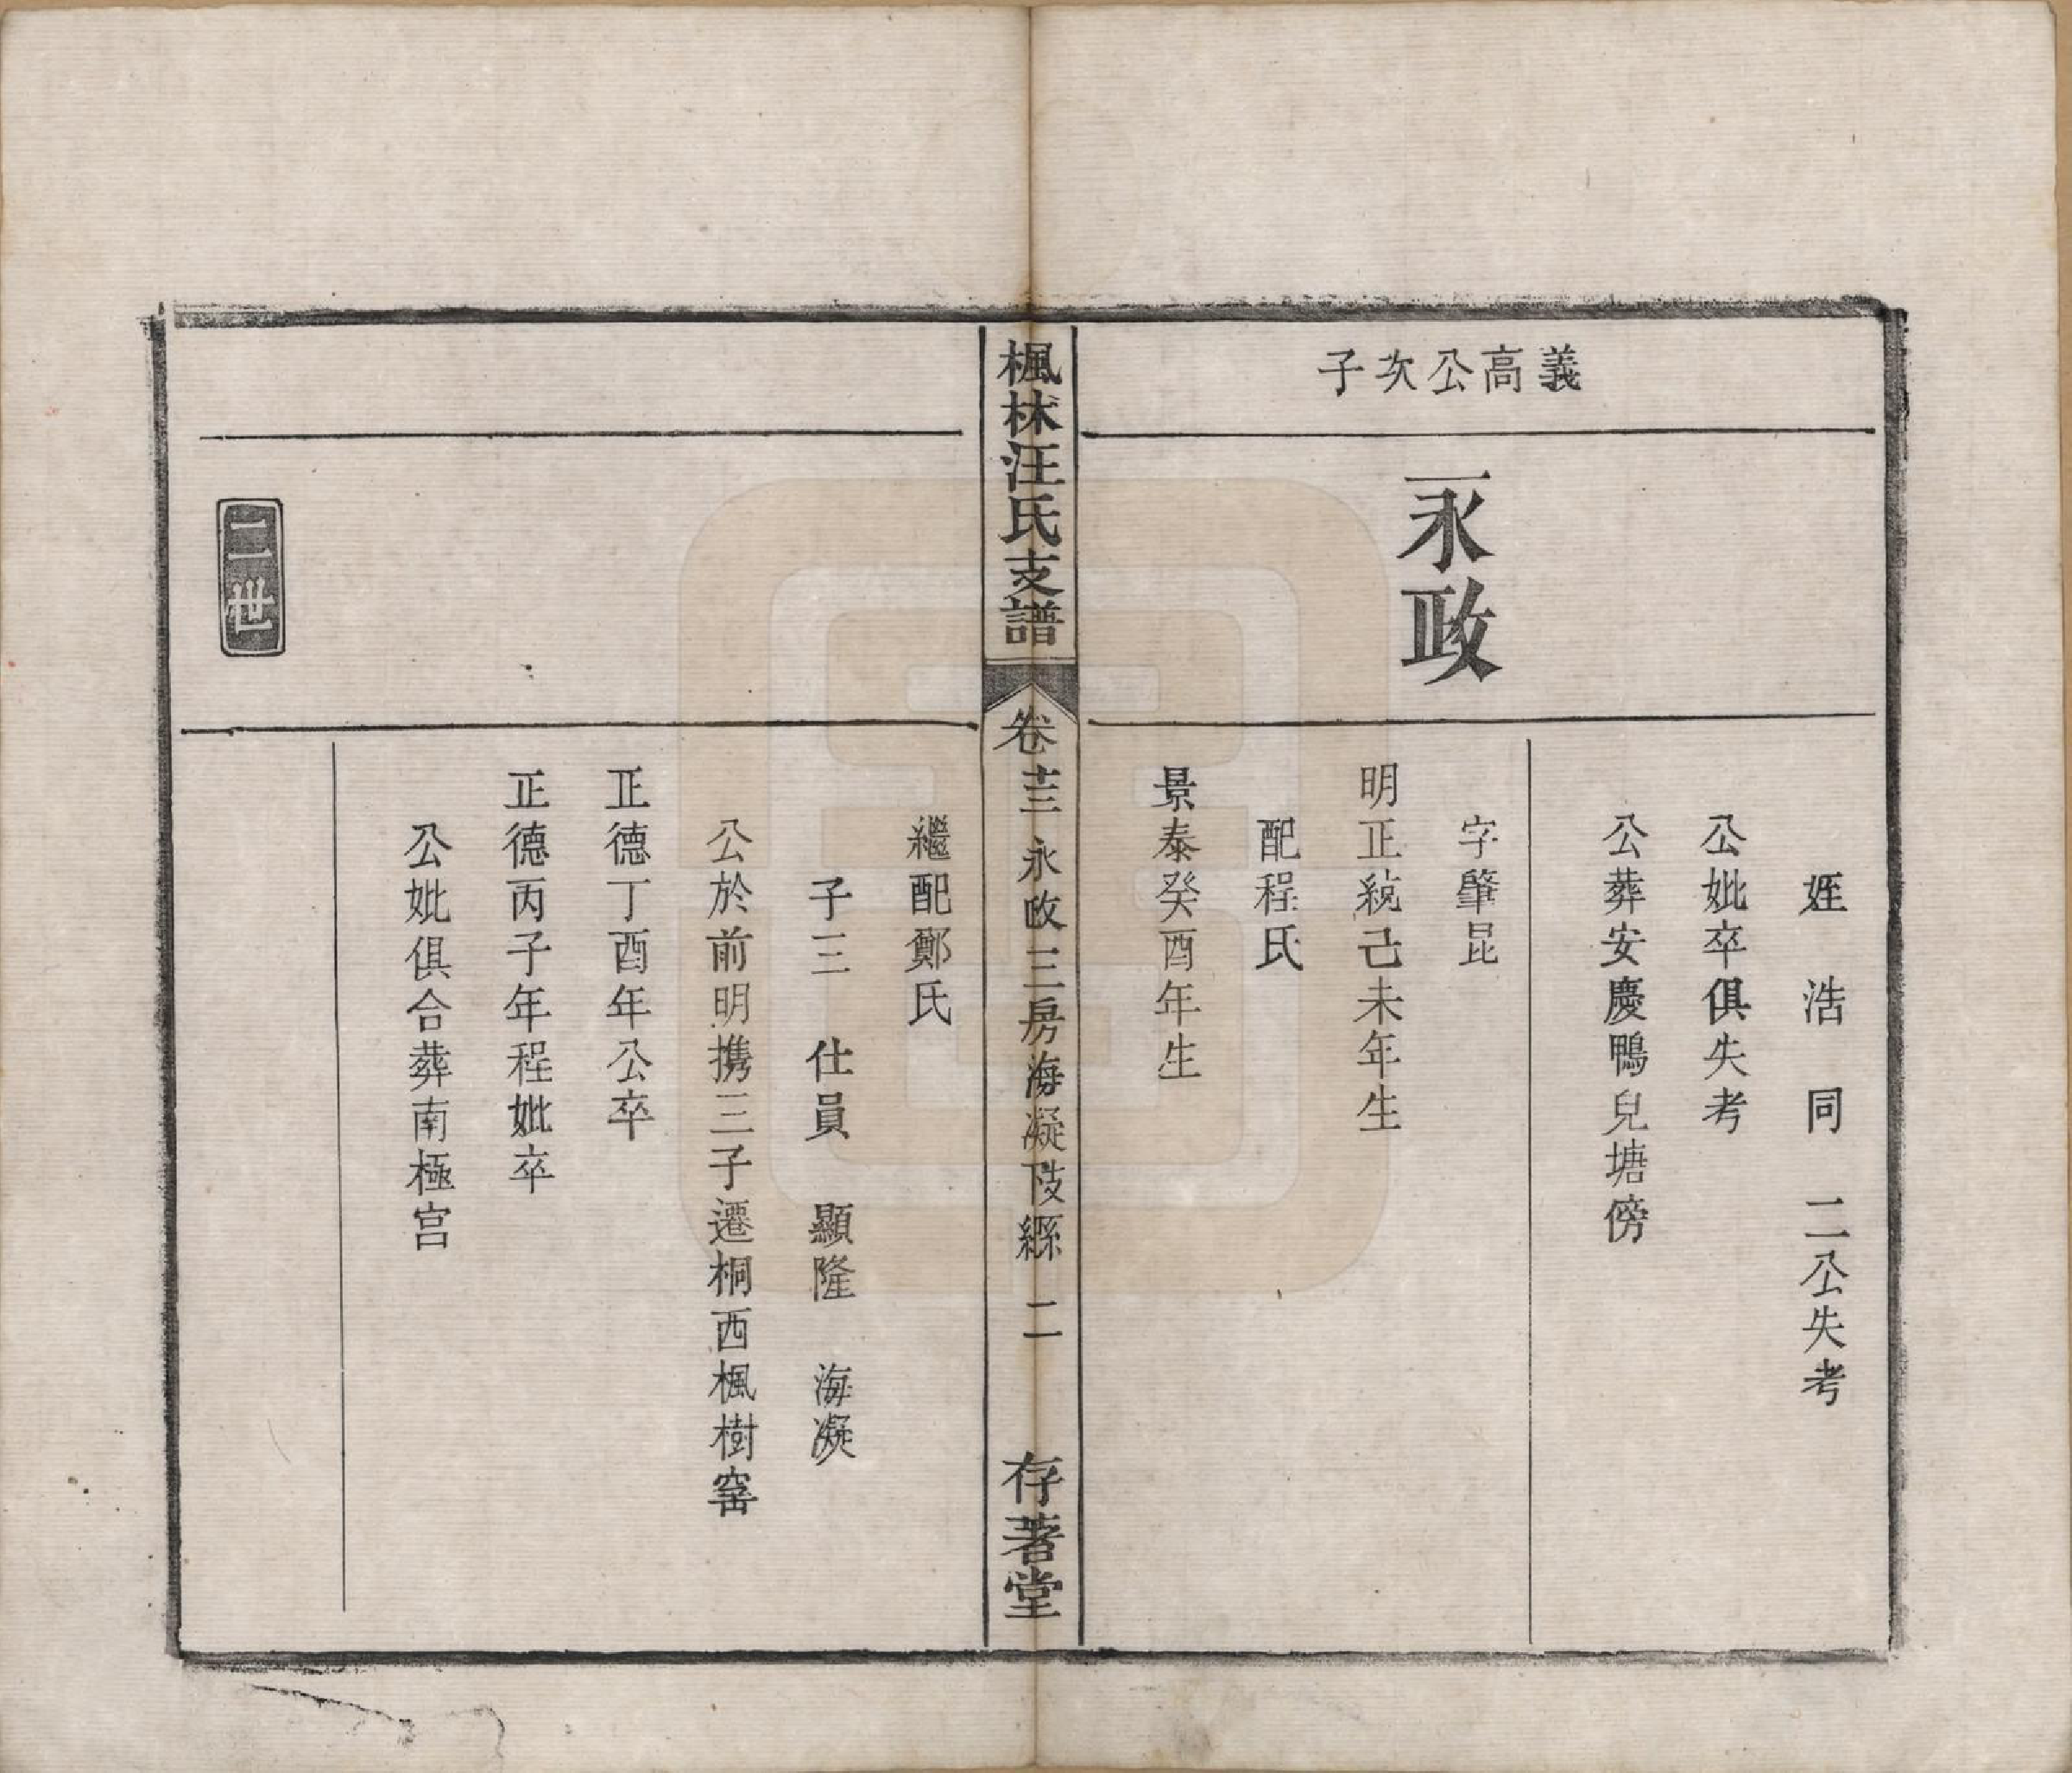 姪　浩　同　二公失考
公妣卒俱失考
公葬安慶鴨兒塘傍
義高公次子
永政
字肇昆
明正統己未年生
配程氏
景泰癸酉年生
楓林汪氏支譜
卷十三　永政三房海凝股縣　二
存著堂
繼配鄭氏
子三　仕員　顯隆　海凝
公於前明攜三子遷桐西楓樹窰
正德丁酉年公卒
正德丙子年程妣卒
公妣俱合葬南極宫
二世